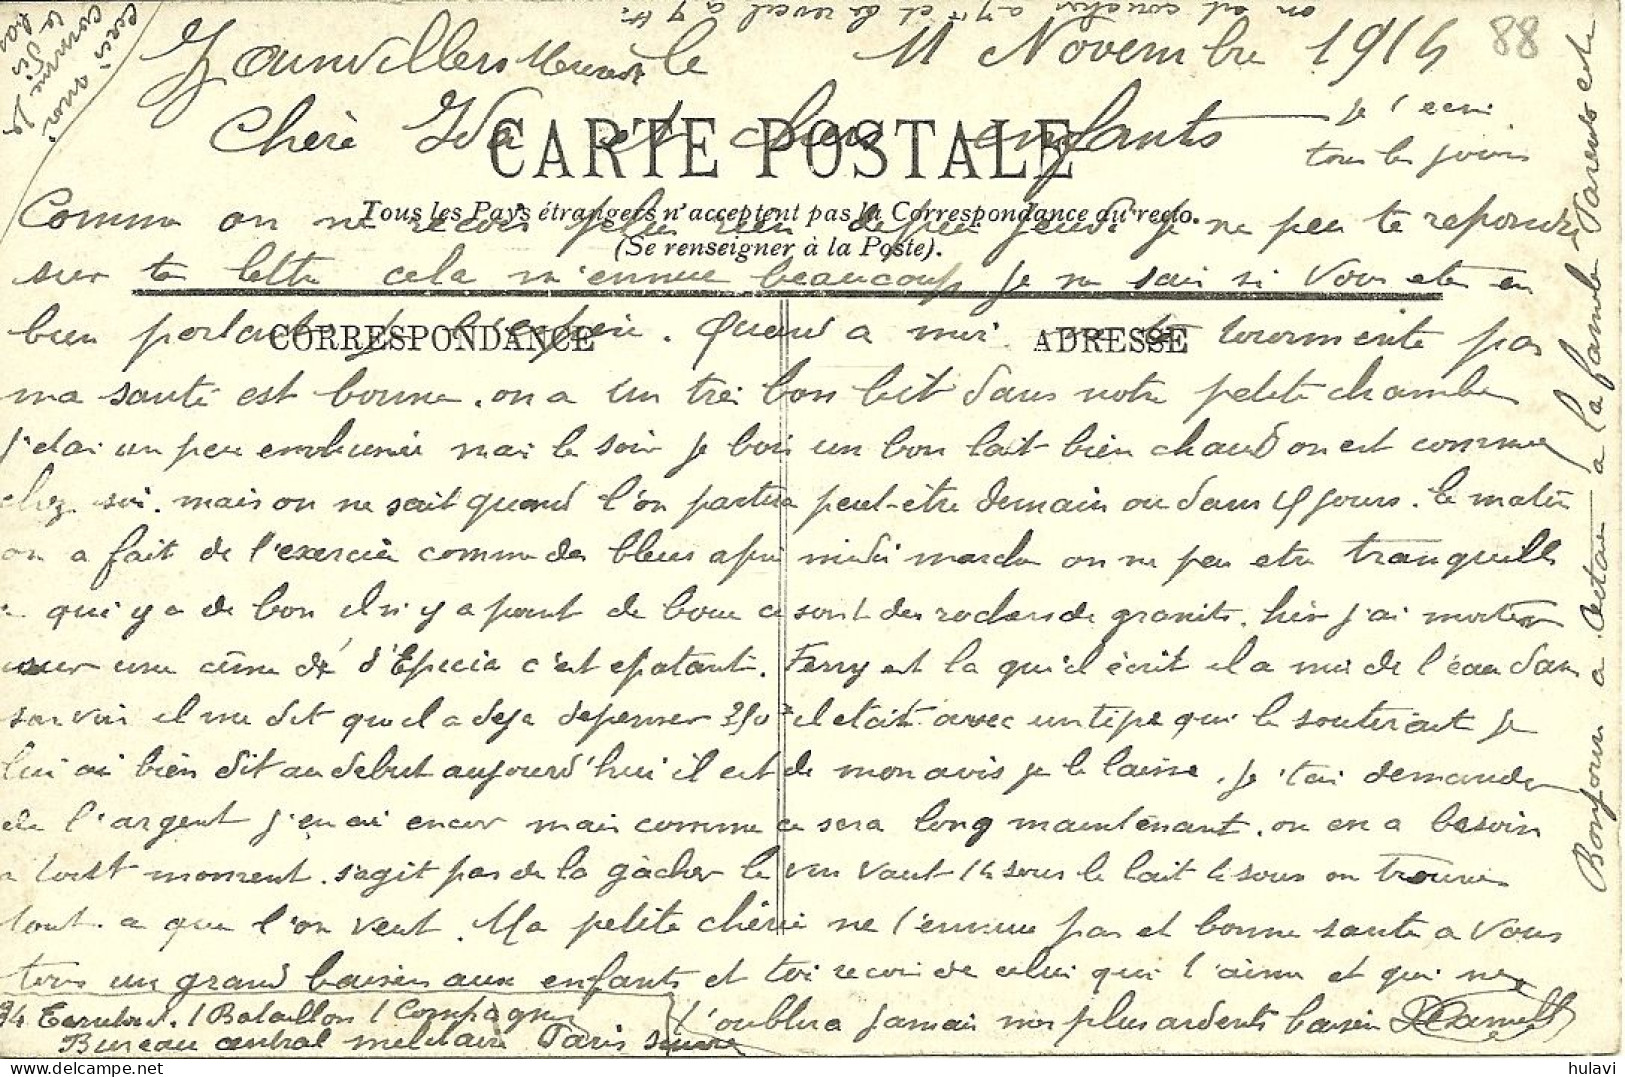 on est couché a 7h et le reveil a 7h
ecris moi
comme
le
bas
11 Novembre 1914
88
Chère Ida et chers enfants
je t'ecri
tous les jours
CARTE POSTALE
Tous les Pays étrangers n'acceptent pas la Correspondance au recto.
(Se renseigner à la Poste).
Comme on ne recois plus rien depui jeudi je ne peu te repondre
sur ta lettre cela m'ennuie beaucoup je ne sais si vous ete en
bien portant je l'espere. Quand a moi ne te tourmente pas
CORRESPONDANCE
ADRESSE
ma santé est bonne. on a un trei bon lit dans notre petite chambre
j'etai un peu enrhumée mai le soir je boi un bon lait bien chaud on est comme
chez soi. mais on ne sait quand l'on partira peut-être demain ou dans 4 jours. le matin
on a fait de l'exercice comme des bleus apri midi marche on ne peu etre tranquille
qui y a de bon il n'y a point de boue ce sont des rochers de granits. hier j'ai monter
sur une cime d'Epicia c'est epatant. Ferry est la qu'il écrit il a mis de l'eau dans
son vin il me dit qu'il a deja depenser 250 il etait avec un tipe qui le soutirait je
lui ai bien dit au debut aujourd'hui il est de mon avis je le laisse. Je t'ai demander
de l'argent j'en ai encor mais comme ce sera long maintenant. on en a besoin
a tout moment. s'agit pas de la gâcher le vin vaut 14 sous le lait 4 sous on trouve
tout a que l'on veut. Ma petite chérie ne t'ennuie pas et bonne sante a vous
tous un grand baisers aux enfants et toi recoi de celui qui t'aime et qui ne
t'oublira jamais mes plus ardents baisers
34 Territorial. 1 Bataillon 1 Compagnie
Bureau central militaire Paris
Bonjour a a la famille Parents etc